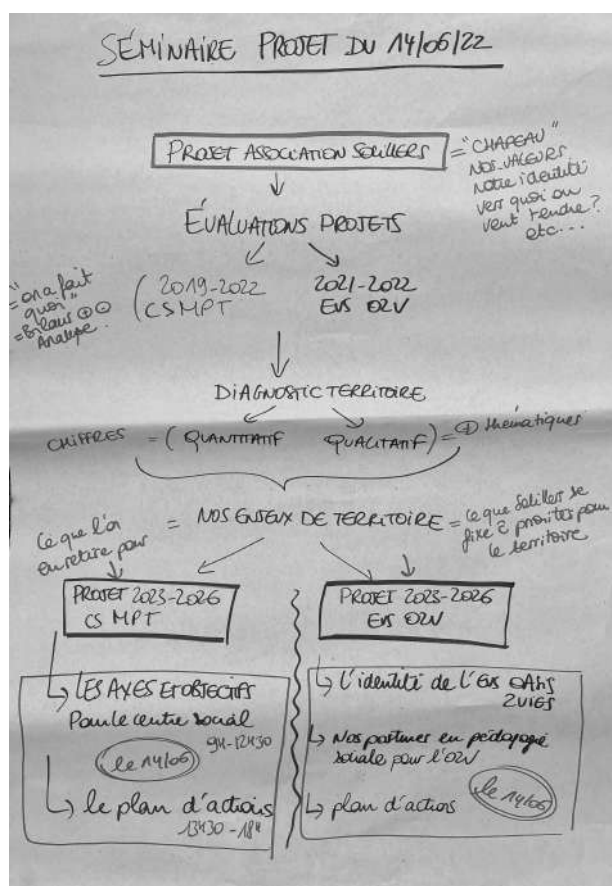 SÉMINAIRE PROJET DU 14/06/22
PROJET ASSOCIATION SOLILLERS
= "CHAPEAU"
NOS VALEURS
Notre identité
vers quoi on
veut tendre?
etc...
ÉVALUATIONS PROJETS
"
= on a fait
quoi"
= Bilans ⊕ ⊖
Analyse.
( 2019-2022
CS MPT
2021-2022
EVS O2V
DIAGNOSTIC TERRITOIRE
CHIFFRES = ( QUANTITATIF QUALITATIF ) = ⊕ thématiques
Ce que l'on
en retire pour
= NOS ENJEUX DE TERRITOIRE =
ce que Soliller se
fixe priorités pour
le territoire
PROJET 2023-2026
CS MPT
PROJET 2023-2026
EVS O2V
LES AXES ET OBJECTIFS
Pour le centre social
9H-12H30
le 14/06
le plan d'actions
13H30-18H
L'identité de l'EVS
2VIES
Nos postures en pédagogie
sociale pour l'O2V
plan d'actions
le 14/06